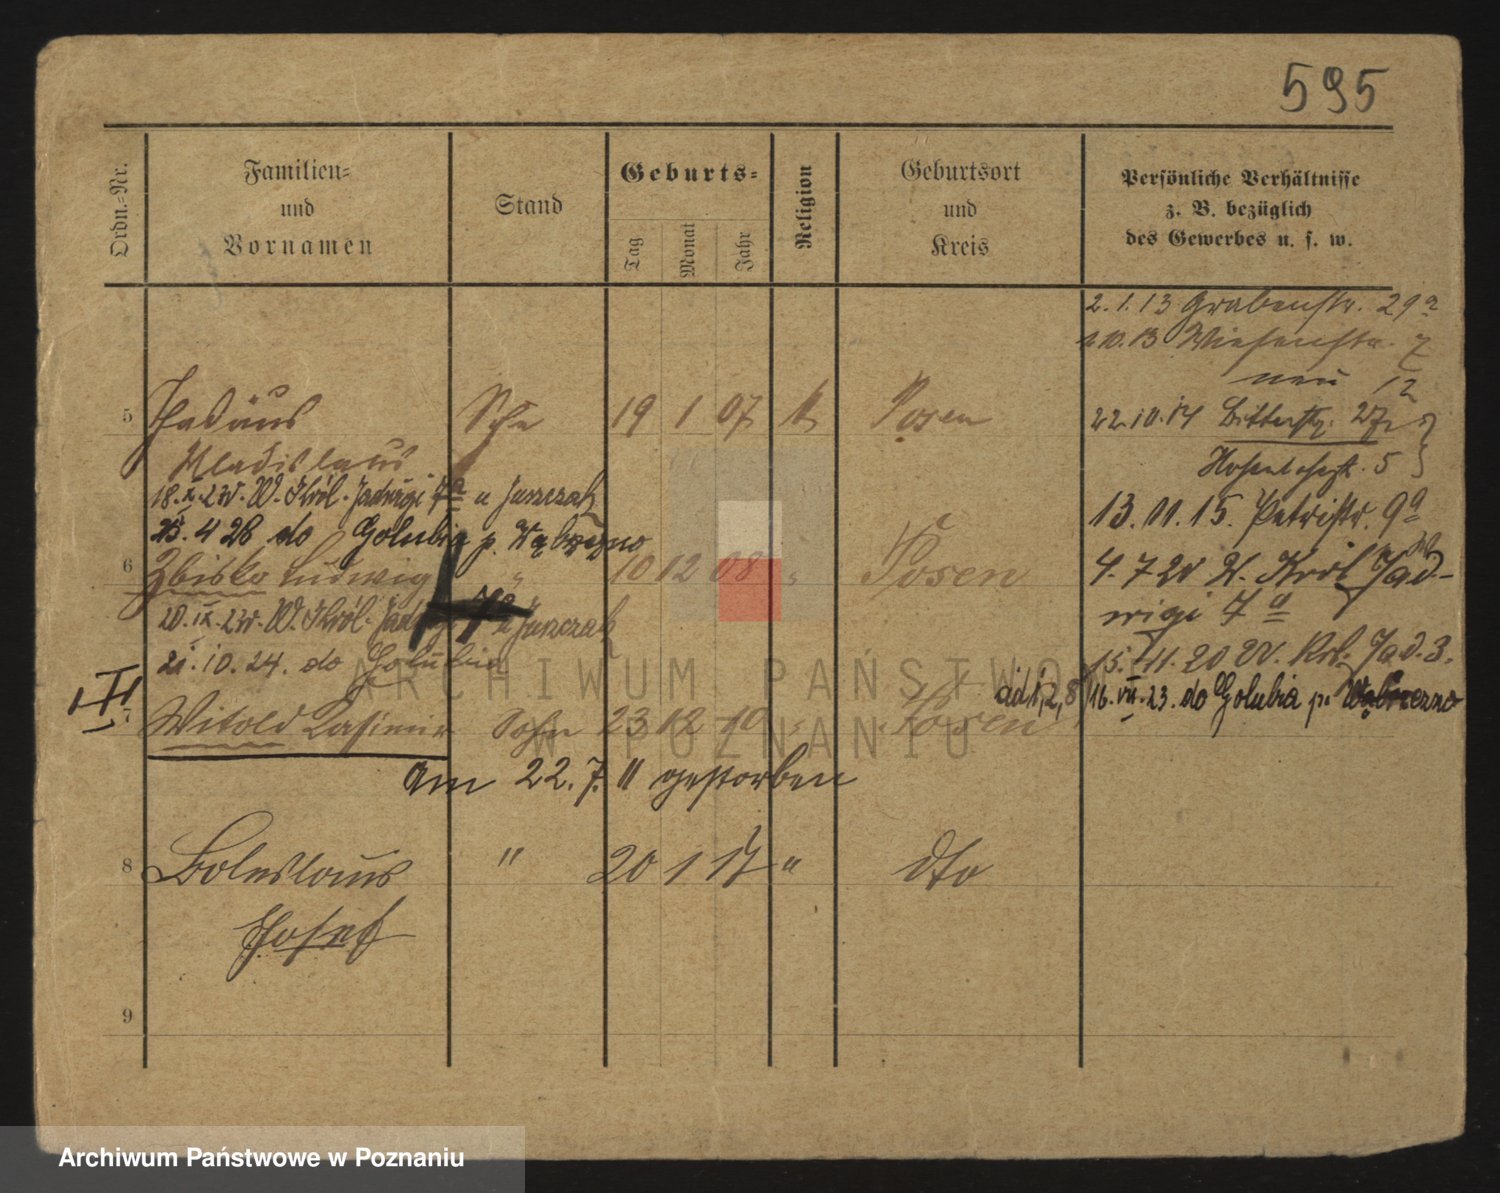 595
Ordn.-Nr.
Familien-
und
Vornamen
Stand
Geburts-
Tag
Monat
Jahr
Religion
Geburtsort
und
Kreis
Persönliche Verhältnisse
z. B. bezüglich
des Gewerbes u. s. w.
2. 1. 13 Grabenstr. 29a
1.10.13 Wiesenstr. 7
neu 12
5 Thadäus Sohn 19 1 07 k Posen
22.10.14 Bitterstr. 27
Wladislaus
Hohenlohestr. 5
18.X.23 W. Król. Jadwigi 7a u Juszczak
13.11.15. Petristr. 9a
23.4 28 do Golubia p. Wąbrzeźno
6 Zbisko Ludwig " 10 12 08 " Posen
4.7 20 W. Król Jad-
wigi 7a
20.IX.23 W. Król. Jadwigi 7a u Juszczak
21.10.24. do Golubia
15.11.20 Król. Jad. 3.
ad 1, 2, 8 16.VII.23. do Golubia p. Wąbrzeźno
7 Witold Casimir Sohn 23 12 10 " Posen
am 22.7.11 gestorben
8 Boleslaus " 20 1 17 " dto
Josef
9
ARCHIWUM PAŃSTWOWE
W POZNANIU
Archiwum Państwowe w Poznaniu